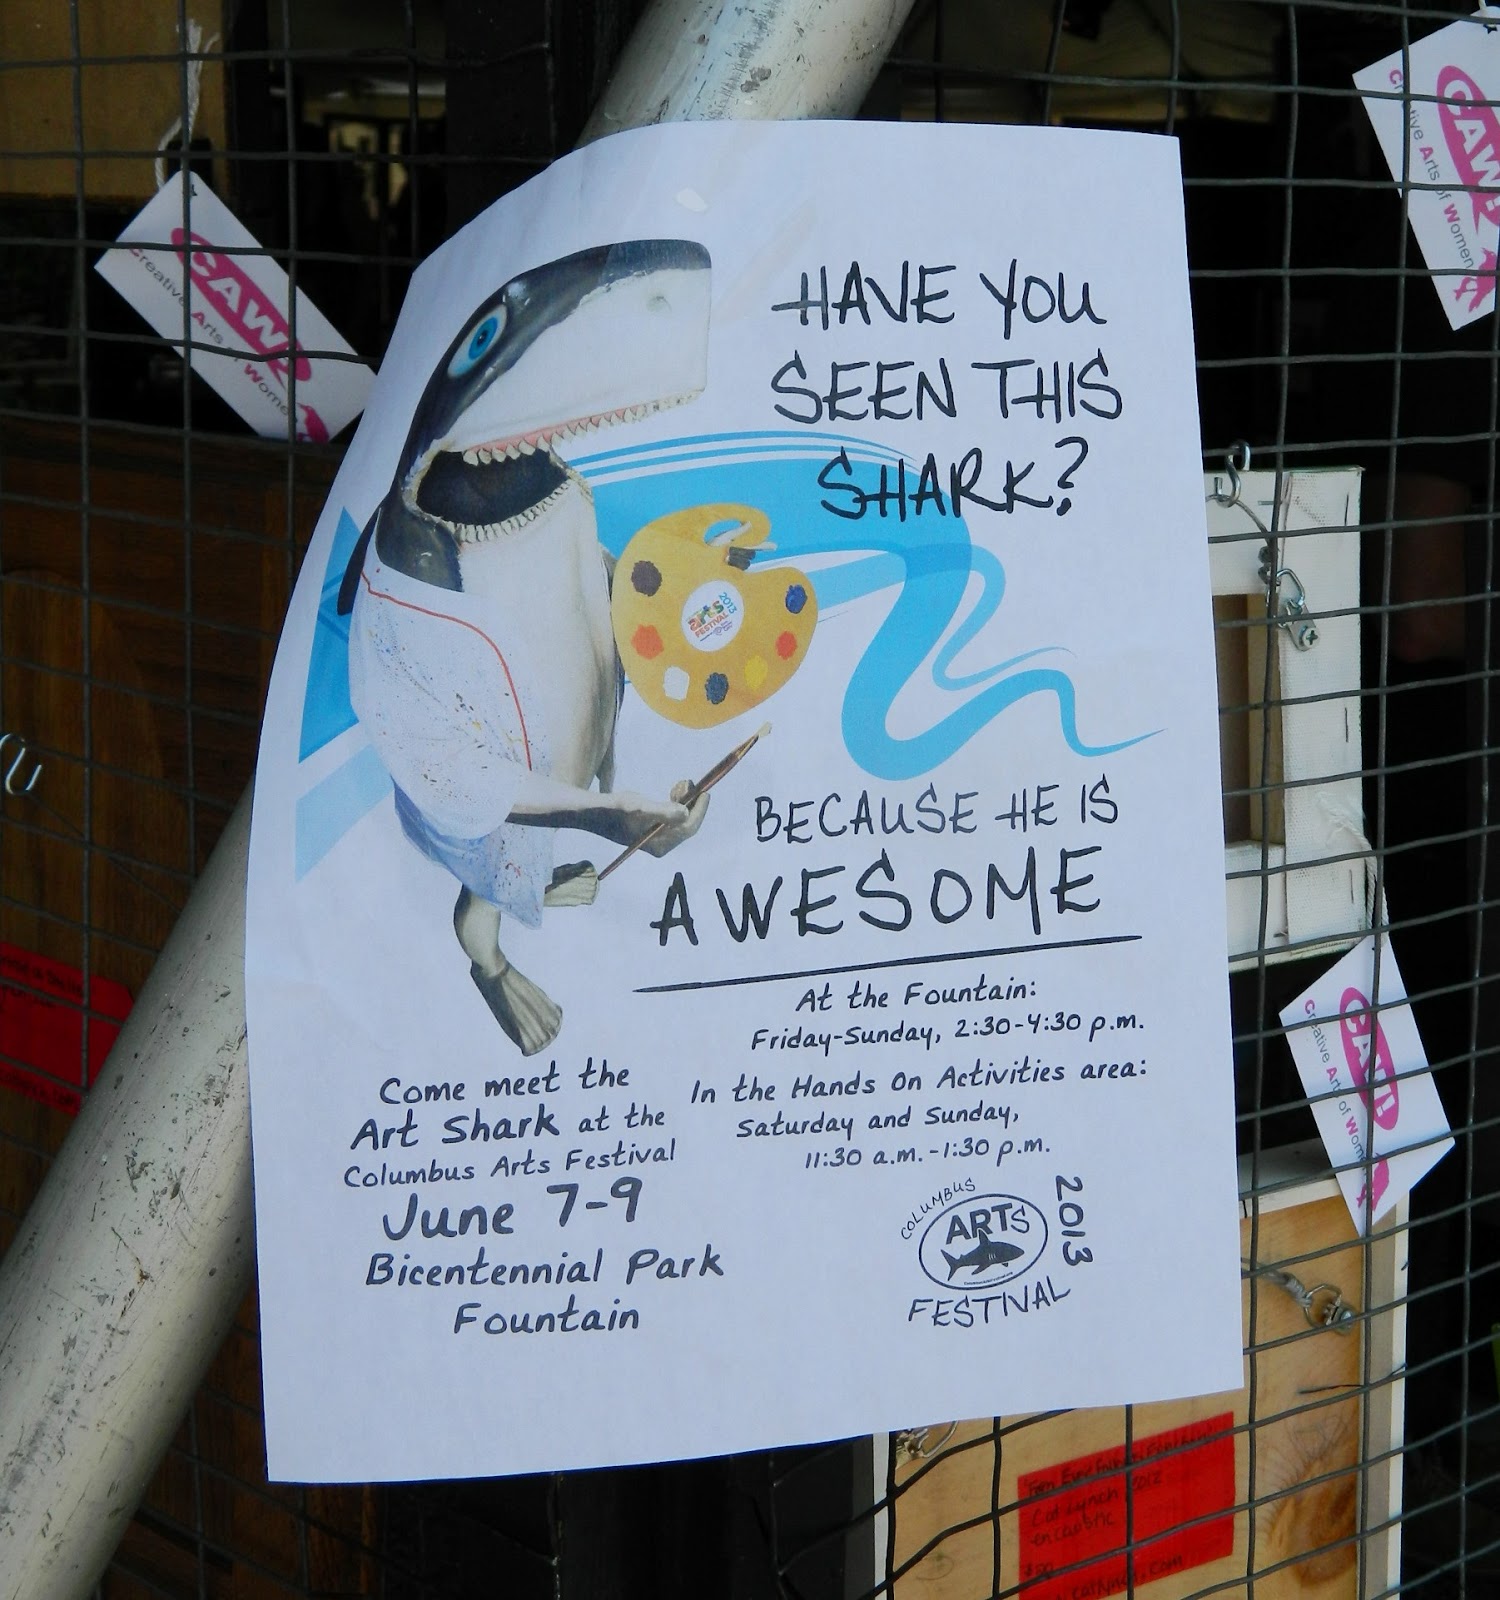 HAVE YOU
SEEN THIS
SHARK?
2013
arts
FESTIVAL
BECAUSE HE IS
AWESOME
At the Fountain:
Friday-Sunday, 2:30-4:30 p.m.
In the Hands On Activities area:
Saturday and Sunday,
11:30 a.m.-1:30 p.m.
Come meet the
Art Shark at the
Columbus Arts Festival
June 7-9
Bicentennial Park
Fountain
COLUMBUS
ARTS
FESTIVAL
2013
CAW!
Creative Arts of Women
CAW!
Creative Arts of Women
CAW!
Creative Arts of Women
Cat Lynch
encaustic
$50